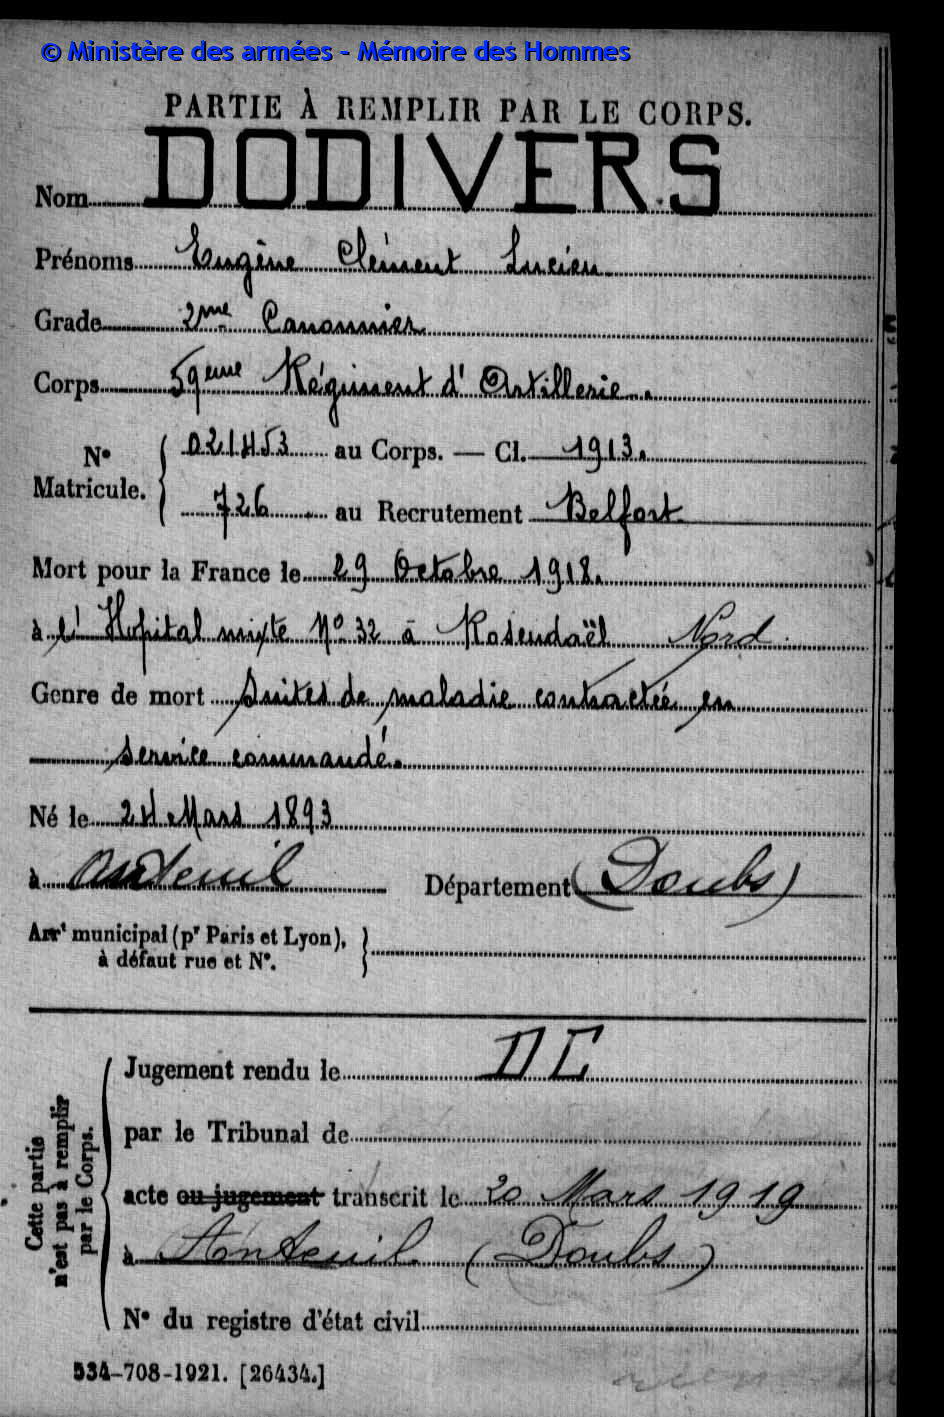 © Ministère des armées - Mémoire des Hommes
PARTIE À REMPLIR PAR LE CORPS.
Nom DODIVERS
Prénoms Eugène Clément Lucien
Grade 2me Canonnier
Corps 59eme Régiment d'Artillerie.
N° Matricule. 021453 au Corps. — Cl. 1913.
726 au Recrutement Belfort
Mort pour la France le 29 Octobre 1918.
à l'Hopital mixte N° 32 à Rosendaël Nord
Genre de mort Suites de maladie contractée en
service commandé.
Né le 24 Mars 1893
à Anteuil Département (Doubs)
Arrt municipal (pr Paris et Lyon),
à défaut rue et N°.
Cette partie n'est pas à remplir par le Corps.
Jugement rendu le DC
par le Tribunal de
acte ou jugement transcrit le 20 Mars 1919
à Anteuil (Doubs)
N° du registre d'état civil
534-708-1921. [26434.]